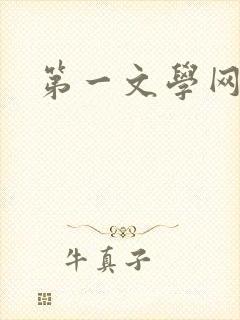 第一文學网
牛真子